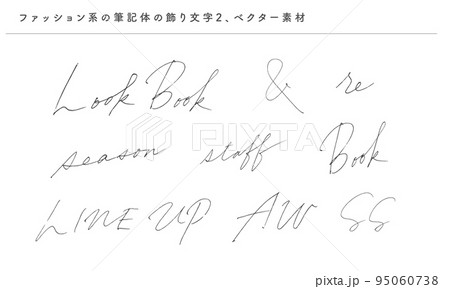 ファッション系の筆記体の飾り文字2、ベクター素材
Look Book & re
season staff Book
LINE UP AW SS
PIXTA
pixta.jp - 95060738